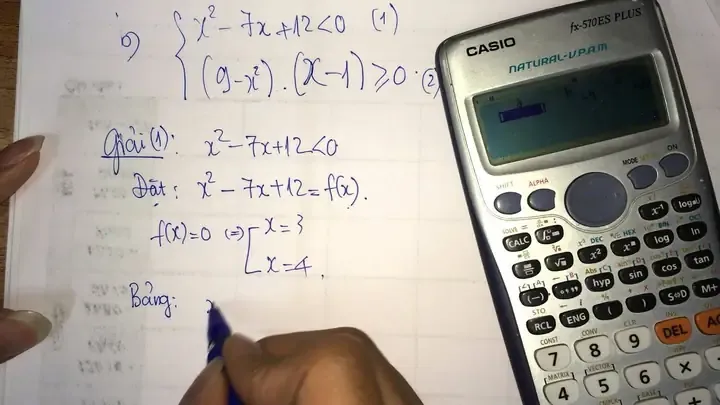 b) { x² - 7x + 12 < 0 (1)
(9 - x²).(x - 1) ≥ 0. (2)
Giải (1): x² - 7x + 12 < 0
Đặt: x² - 7x + 12 = f(x).
f(x) = 0 ⇔ [ x = 3
x = 4.
Bảng: x
CASIO fx-570ES PLUS
NATURAL-V.P.A.M.
SHIFT ALPHA MODE ON
SOLVE =
CALC x⁻¹
x² log ln
(-) °'" hyp sin cos tan
STO
RCL ENG ( ) S⇔D M+
CONST CONV CLR
7 8 9 DEL AC
MATRIX VECTOR
4 5 6 ×